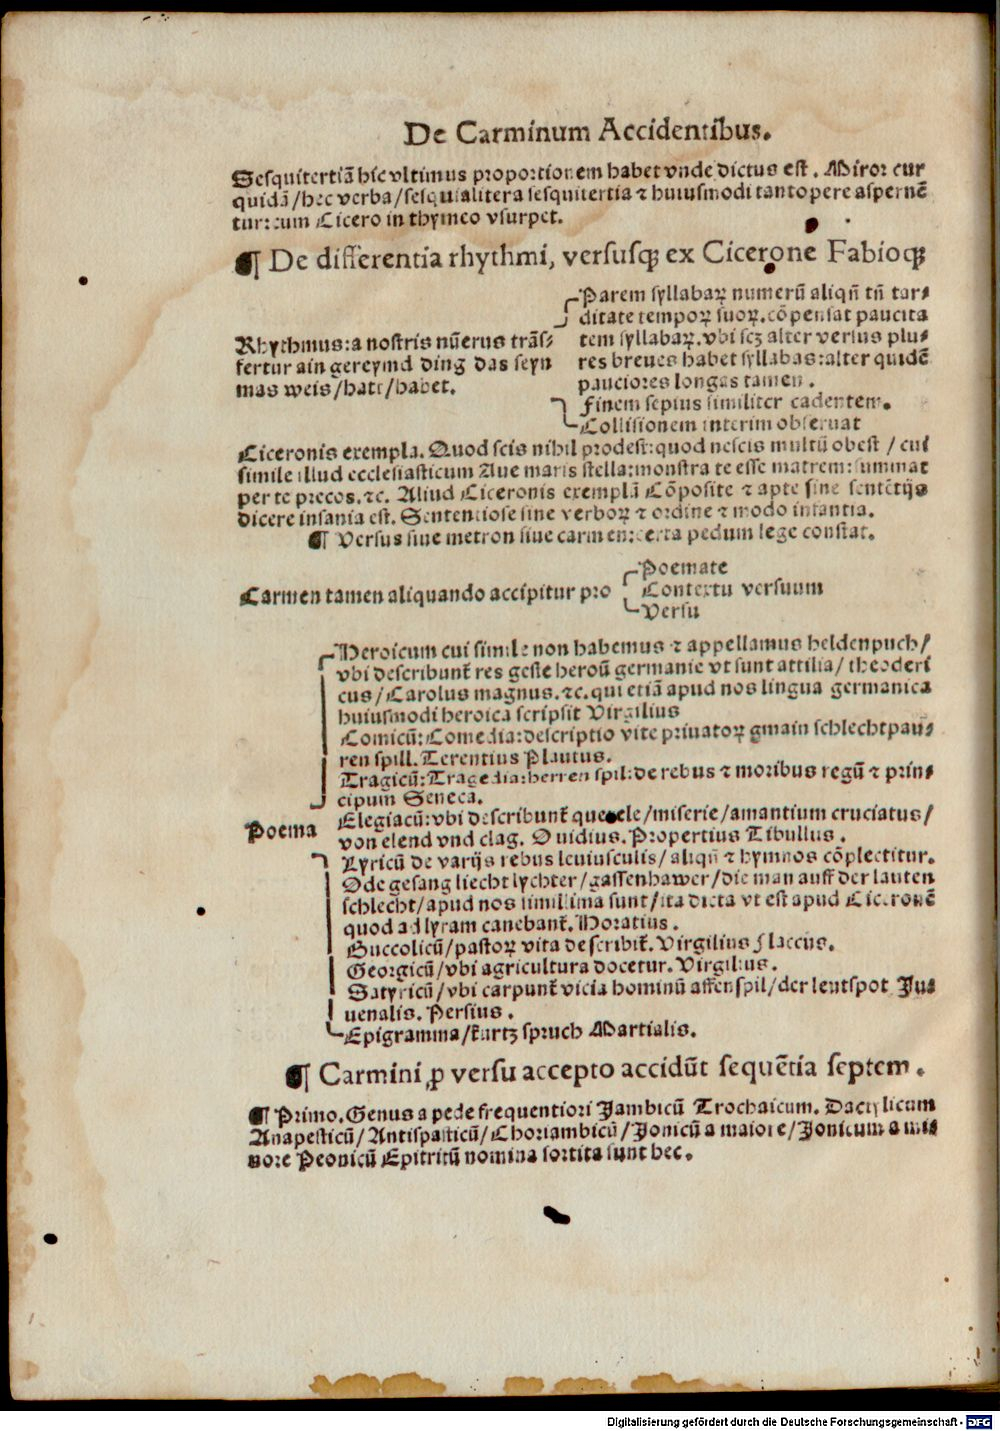 De Carminum Accidentibus.
Sesquitertiā hic vltimus proportionem habet vnde dictus est. Miror cur
quidā/hec verba/sesquialitera sesquitertia ⁊ huiusmodi tantopere aspernē
tur: cum Cicero in thymeo vsurpet.
¶ De differentia rhythmi, versusqꝫ ex Cicerone Fabioqꝫ
Rhythmus: a nostris nūerus trāſ-
fertur ain gereymd ding das seyn
mas weis/hatt/habet.
Parem syllabaꝝ numerū aliqn̄ tn̄ tar-
ditate tempoꝝ suoꝝ. cōpensat paucita
tem syllabaꝝ. vbi scꝫ alter versus plu-
res breues habet syllabas: alter quidē
pauciores longas tamen.
Finem sepius similiter cadentem.
Collisionem interim obseruat
Ciceronis exempla. Quod scis nihil prodest: quod nescis multū obest / cui
simile illud ecclesiasticum Aue maris stella: monstra te esse matrem: summat
per te preces. ⁊c. Aliud Ciceronis exemplū Cōposite ⁊ apte sine sentētijs
dicere insania est. Sententiose sine verboꝝ ⁊ ordine ⁊ modo infantia.
¶ Versus siue metron siue carmen: certa pedum lege constat.
Carmen tamen aliquando accipitur pro
Poemate
Contextu versuum
Versu
Poema
Heroicum cui simile non habemus ⁊ appellamus heldenpuch/
vbi describunt᷑ res geste heroū germanie vt sunt attilia/ theoderi
cus/Carolus magnus. ⁊c. qui etiā apud nos lingua germanica
huiusmodi heroica scripsit Virgilius
Comicū: Comedia: descriptio vite priuatoꝝ gmain schlechtpau-
ren spill. Terentius Plautus.
Tragicū: Tragedia: herren spil: de rebus ⁊ moribus regū ⁊ prin-
cipum Seneca.
Elegiacū: vbi describunt᷑ querele/miserie/amantium cruciatus/
von elend vnd clag. Ouidius. Propertius Tibullus.
Lyricū de varijs rebus leuiusculis/aliqn̄ ⁊ hymnos cōplectitur.
Ode gesang liecht lychter/gassenhawer/die man auff der lauten
schlecht/apud nos simillima sunt/ita dicta vt est apud Ciceronē
quod ad lyram canebant᷑. Horatius.
Buccolicū/pastoꝝ vita describit᷑. Virgilius Flaccus.
Georgicū/vbi agricultura docetur. Virgilius.
Satyricū/vbi carpunt᷑ vicia hominū affenspil/der leutspot Ju-
uenalis. Persius.
Epigramma/kurtz spruch Martialis.
¶ Carmini ꝓ versu accepto accidūt sequētia septem.
¶ Primo. Genus a pede frequentiori Jambicū Trochaicum. Dactylicum
Anapesticū/Antispasticū/Choriambicū/Jonicū a maiore/Jonicum a mi-
nore Peonicū Epitritū nomina sortita sunt hec.
Digitalisierung gefördert durch die Deutsche Forschungsgemeinschaft - DFG